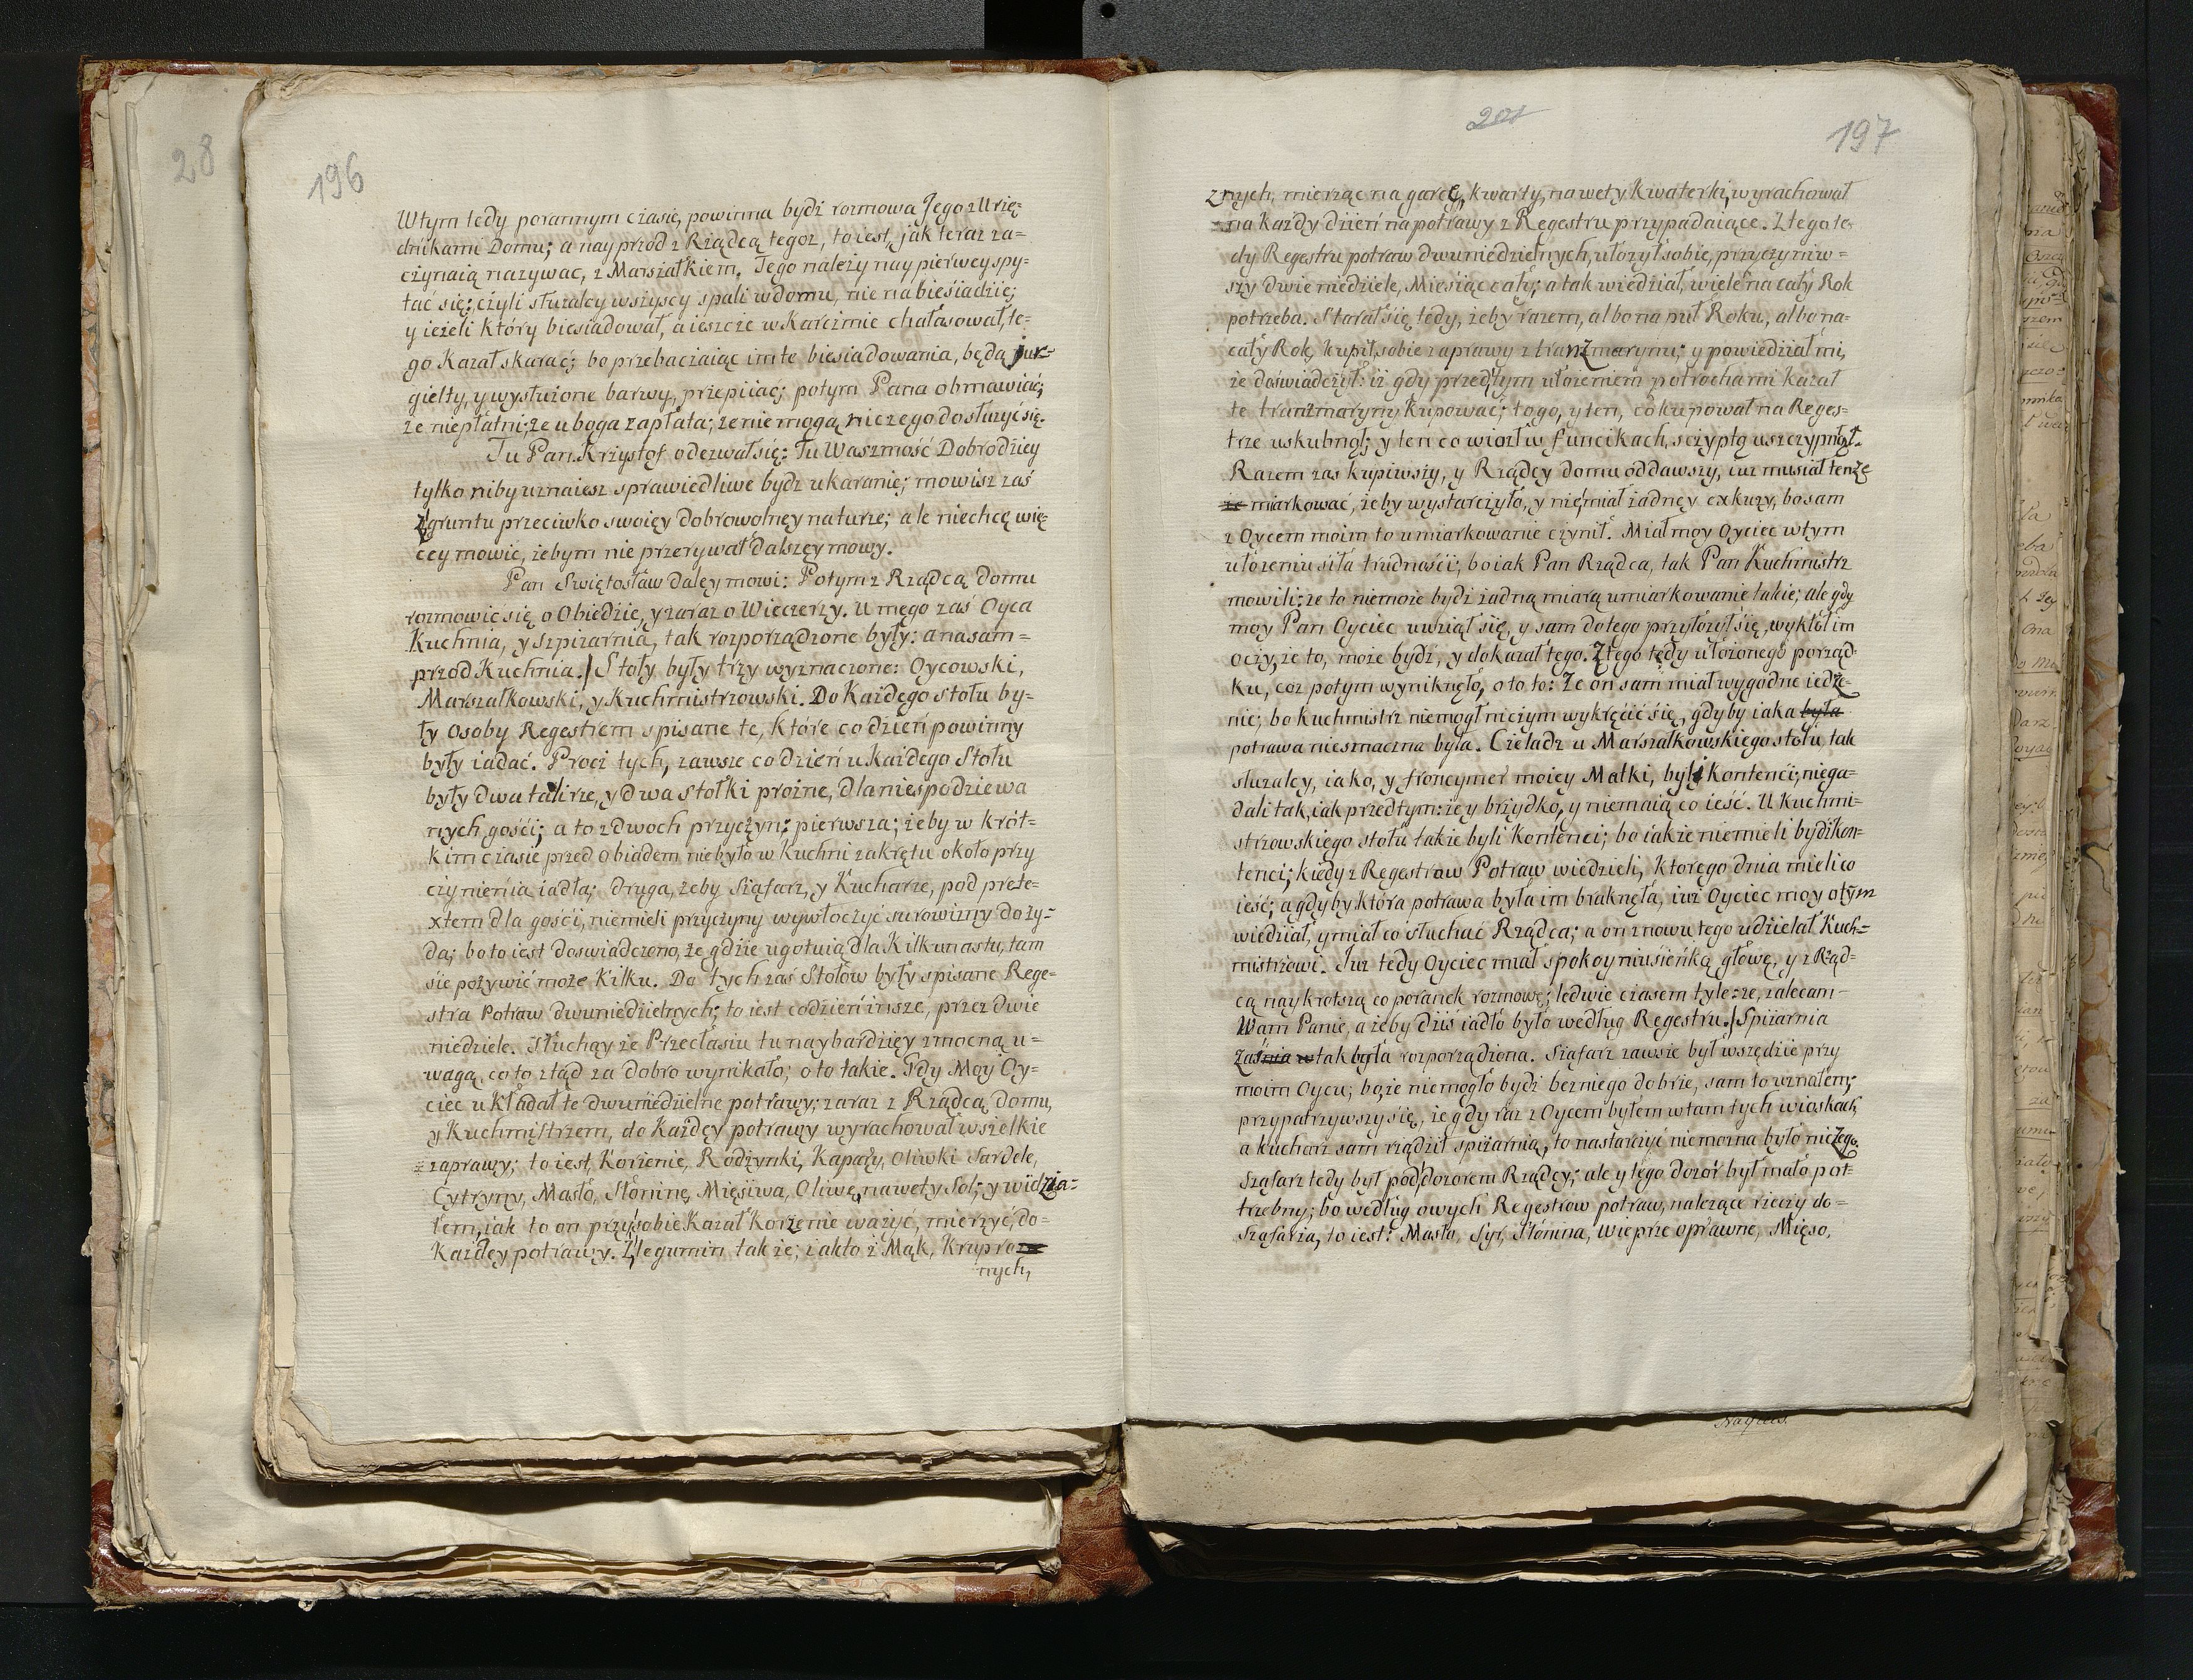 28
196
Wtym tedy porannym czasie, powinna bydź rozmowa Jego z Urzę=
dnikami Domu; a nayprzod z Rządcą tegoz, to iest, jak teraz za=
czynaią nazywac, z Marszałkiem. Tego należy nay pierwey spy=
tać się: czyli słuzalcy wszyscy spali w domu, nie na biesiadzie;
y ieżeli który biesiadował, a ieszcze w Karczmie chałasował, te=
go Kazał skarać; bo przebaczaiąc im te biesiadowania, będą jur=
gielty, y wysłużone barwy, przepiiać; potym Pana obmawiać;
że niepłatni; że uboga zapłata; że nie mogą niczego dosłużyć się.
Tu Pan Krzysztof odezwał się: Tu Waszmość Dobrodziey
tylko niby uznaiesz sprawiedliwe bydz ukaranie; mowisz zaś
z gruntu przeciwko swoiey dobrowolney naturze; ale niechcę wię=
cey mowic, żebym nie przerywał dalszey mowy.
Pan Swiętosław daley mowi: Potym z Rządcą domu
rozmowic się, o Obiedzie, y zaraz o Wieczerzy. U mego zaś Oyca
Kuchnia, y Szpizarnia, tak rozporządzone były: a nasam=
przod Kuchnia./ Stoły były trzy wyznaczone: Oycowski,
Marszałkowski, y Kuchmistrzowski. Do Każdego stołu by=
ły osoby Regestrem spisane te, które co dzień powinny
były iadać. Procz tych, zawsze co dzień u Każdego Stołu
były dwa talirze, y dwa Stołki prozne, dla niespodziewa
nych gości; a to z dwoch przyczyn: pierwsza; żeby w krót=
kim czasie przed obiadem niebyło w Kuchni zakrętu około przy
czynienia iadła; druga, żeby Szafarz, y Kucharze, pod prete=
xtem dla gości, niemieli przyczyny wywłoczyć surowizny do ży=
da; bo to iest doswiadczono, że gdzie ugotuią dla Kilkunastu, tam
sie pożywić może Kilku. Do tych zaś Stołow były spisane Rege=
stra Potraw dwuniedzielnych; to iest codzień insze, przez dwie
niedziele. Słuchay że Przecłasiu tu naybardziey z mocną u=
wagą, co to ztąd za dobro wynikało; oto takie. Gdy Moy Oy=
ciec układał te dwuniedzielne potrawy; zaraz z Rządcą domu,
y Kuchmistrzem, do Każdey potrawy wyrachował wszelkie
zaprawy; to iest, Korzenie, Rodzynki, Kapary, Oliwki Sardele,
Cytryny, Masło, Słoninę, Mięsiwa, Oliwę, nawety Sol; y widzia=
łem, jak to on przy sobie Kazał Korzenie ważyć, mierzyć, do=
Każdey potrawy. Z legumin takze; iakto z Mąk, Krup ro
nych,
201
197
znych, mierząc na garcy, kwarty, nawety Kwaterki, wyrachował
na Kazdy dzień na potrawy z Regestru przypadaiące. Z tego te=
dy Regestru potraw dwuniedzielnych, ułożył sobie, przyczyniw=
szy dwie niedziele, Miesiąc cały; a tak wiedział, wiele na cały Rok
potrzeba. Starał się tedy, żeby razem, albo na puł Roku, albo na=
cały Rok, kupił sobie zaprawy z tranzmaryny; y powiedział mi,
że doświadczył: iż gdy przedtym ułożeniem potrochami Kazał
te tranzmaryny Kupować; to go, y ten, co kupował na Reges=
trze uskubnął; y ten co wiozł w funcikach, sczyptę uszczypnął.
Razem zas kupiwszy, y Rządcy domu oddawszy, iuz musiał tenże
miarkować, żeby wystarczyło, y niemiał żadney exkuzy, bo sam
z Oycem moim to umiarkowanie czynił. Miał moy Oyciec w tym
ułożeniu siła trudności; bo iak Pan Rządca, tak Pan Kuchmistrz
mowili: że to niemoże bydź żadną miarą umiarkowanie takie; ale gdy
moy Pan Oyciec uwziął się, y sam do tego przyłożył się, wykłół im
oczy, że to, może bydź, y dokazał tego. Z tego tedy ułożonego porząd=
ku, coz potym wyniknęło, oto to: Ze on sam miał wygodne iedze=
nie; bo Kuchmistrz niemogł niczym wykręcić się, gdyby iaka była
potrawa niesmaczna była. Czeladz u Marszałkowskiego stołu, tak
słuzalcy, iako, y froncymer moiey Matki, byli Kontenci; niega=
dali tak, iak przedtym: ze y brzydko, y niemaią co ieść. U Kuchmi=
strzowskiego stołu takze byli Kontenci; bo iakze niemieli bydź kon=
tenci; kiedy z Regestrow Potraw wiedzieli, Ktorego dnia mieli co
ieść; a gdyby która potrawa była im braknęła, iuż Oyciec moy otym
wiedział, y miał co słuchać Rządca; a on znowu tego udzielał Kuch=
mistrzowi. Iuz tedy Oyciec miał spokoyniusieńką głowę, y z Rząd=
cą naykrotszą co poranek rozmowę; ledwie czasem tyle: ze, zalecam
Wam Panie, ażeby dziś iadło było według Regestru./ Spizarnia
zaś tak była rozporządzona. Szafarz zawsze był wszędzie przy
moim Oycu; boże niemogło bydź bez niego dobrze, sam to uznałem;
przypatrzywszy się, że gdy raz z Oycem byłem w tam tych wioskach,
a kucharz sam rządził spiżarnią, to nastarczyć niemozna było niczego.
Szafarz tedy był pod dozorem Rządcy; ale y tego dozor był mało pot=
trzebny; bo według owych Regestrow potraw, nalezące rzeczy do=
Szafarza, to iest: Masło, Syr, Słonina, wieprze oprawne, Mięso,